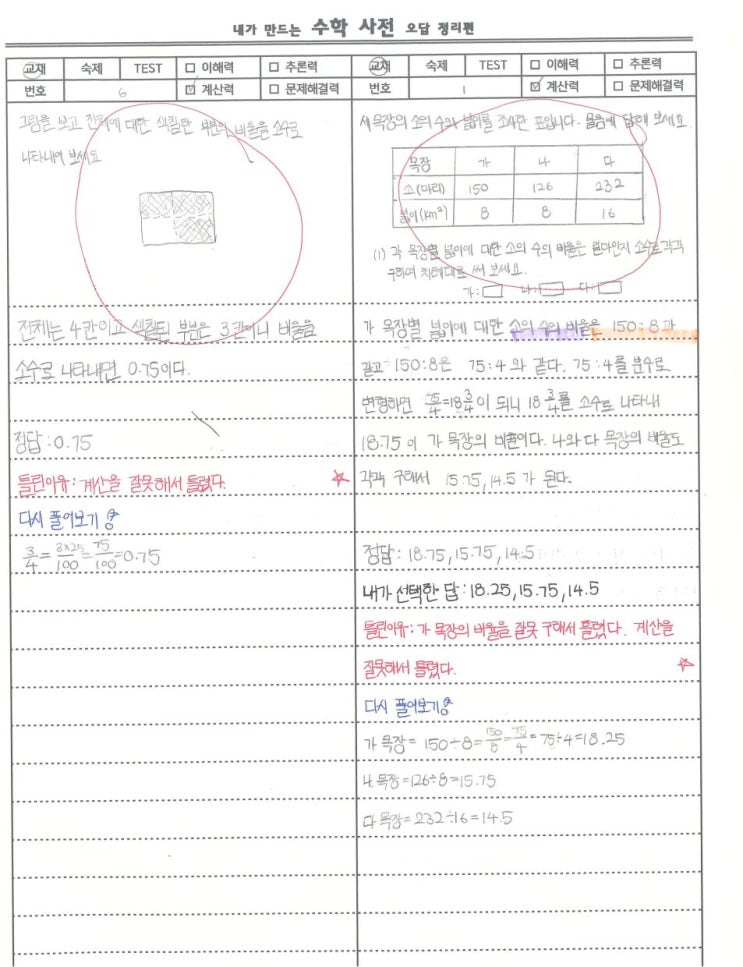 내가 만드는 수학 사전 오답 정리편
교재 숙제 TEST □ 이해력 □ 추론력
번호 6 ☑ 계산력 □ 문제해결력
그림을 보고 전체에 대한 색칠한 부분의 비율을 소수로
나타내어 보세요
전체는 4칸이고 색칠된 부분은 3칸이니 비율을
소수로 나타내면 0.75이다.
정답 : 0.75
틀린이유 : 계산을 잘못해서 틀렸다.
다시 풀어보기
3/4 = 3×25/100 = 75/100 = 0.75
교재 숙제 TEST □ 이해력 □ 추론력
번호 1 ☑ 계산력 □ 문제해결력
세 목장의 소의 수와 넓이를 조사한 표입니다. 물음에 답해 보세요.
목장 가 나 다
소(마리) 150 126 232
넓이(km²) 8 8 16
(1) 각 목장별 넓이에 대한 소의 수의 비율은 얼마인지 소수로 각각
구하여 차례대로 써 보세요.
가:□ 나:□ 다:□
가 목장별 넓이에 대한 소의 수의 비율은 150:8과
같고 150:8은 75:4 와 같다. 75:4를 분수로
변형하면 75/4=18 3/4이 되니 18 3/4를 소수로 나타내
18.75 이 가 목장의 비율이다. 나와 다 목장의 비율도
각각 구해서 15.75, 14.5 가 된다.
정답 : 18.75, 15.75, 14.5
내가 선택한 답 : 18.25, 15.75, 14.5
틀린이유 : 가 목장의 비율을 잘못 구해서 틀렸다. 계산을
잘못해서 틀렸다.
다시 풀어보기
가 목장 = 150÷8 = 150/8 = 75/4 = 75÷4 = 18.25
나 목장 = 126÷8 = 15.75
다 목장 = 232÷16 = 14.5